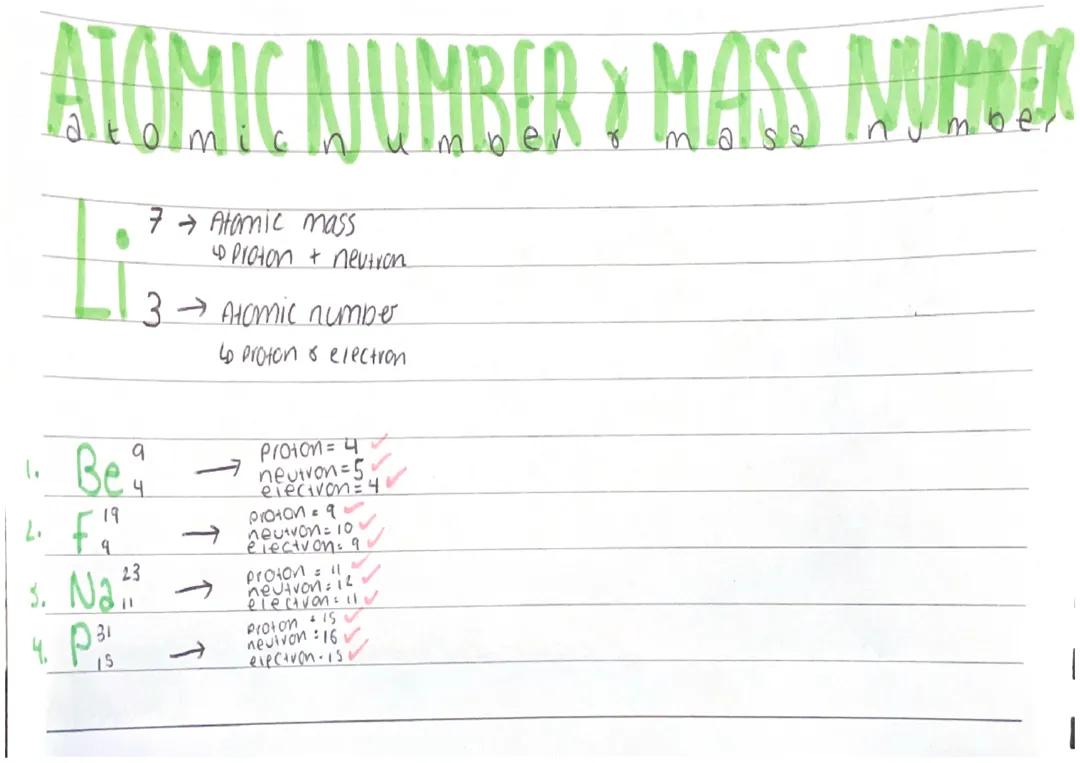 ATOMIC NUMBER & MASS NUMBER
atomic number & mass number
Li 7 → Atomic mass
↳ proton + neutron
3 → Atomic number
↳ proton & electron
1. Be 9 4 → proton = 4 ✓
neutron = 5 ✓
electron = 4 ✓
2. F 19 9 → proton = 9 ✓
neutron = 10 ✓
electron = 9 ✓
3. Na 23 11 → proton = 11 ✓
neutron = 12 ✓
electron = 11 ✓
4. P 31 15 → proton = 15 ✓
neutron = 16 ✓
electron = 15 ✓